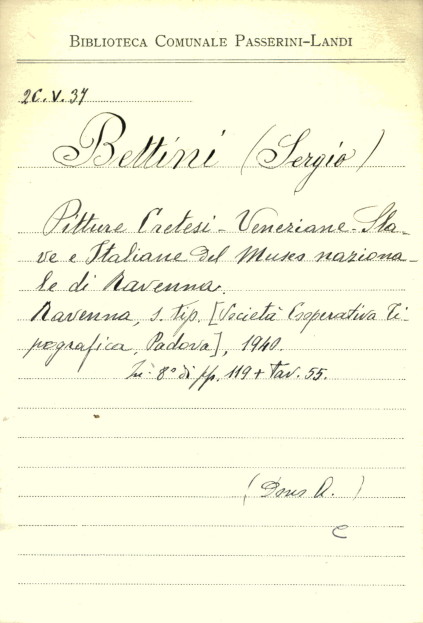 BIBLIOTECA COMUNALE PASSERINI-LANDI
2C.V.37
Bettini (Sergio)
Pitture Cretesi-Veneziane-Sla-
ve e Italiane del Museo naziona-
le di Ravenna.
Ravenna, s. tip. [Società Cooperativa Ti-
pografica, Padova], 1940.
In-8° di pp. 119 + tav. 55.
(Dono A.)
C